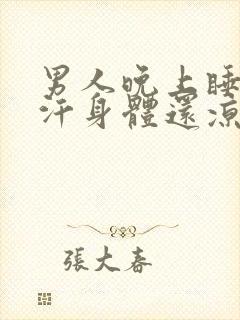 男人晚上睡
汗身體還涼
張大春